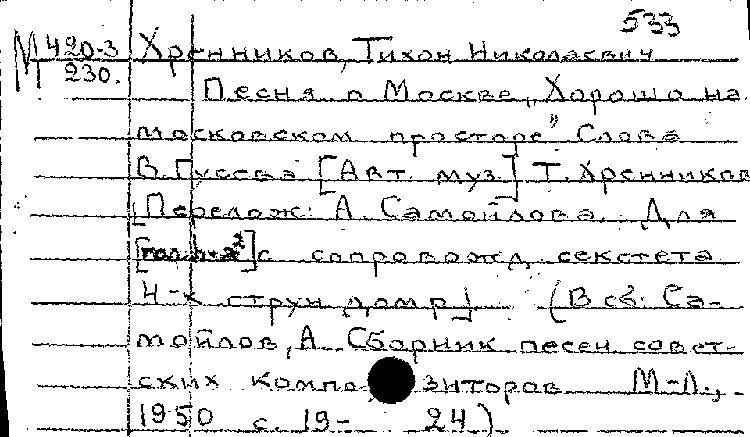 533
М 420-3 Хренников, Тихон Николаевич
230. Песня о Москве „Хорошо на
московском просторе" Слова
В. Гусева [Авт. муз.] Т. Хренников
[Перелож. А. Самойлова. Для
с сопровожд. секстета
4-х струн домр] (В сб: Са-
мойлов, А. Сборник песен совет-
ских композиторов М-Л.,
1950 с. 19- 24)